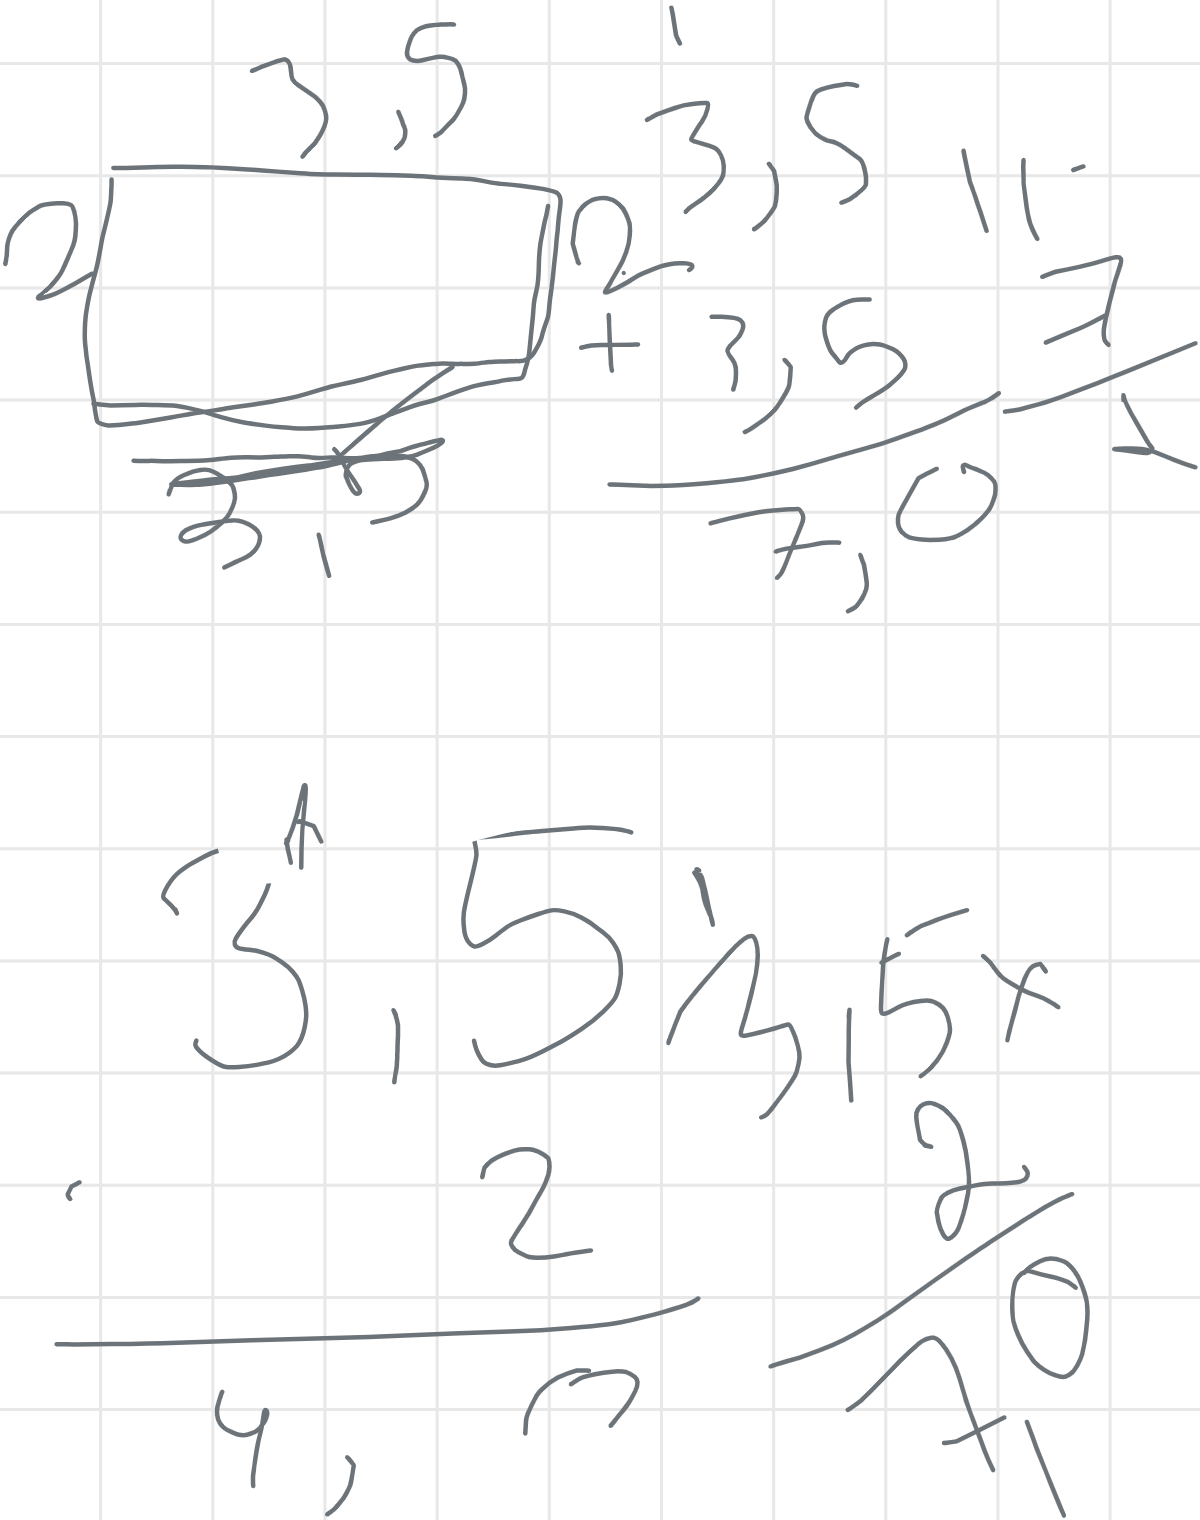 3,5
2
2
3,5
1
3,5
+ 3,5
7,0
11-
7
4
1
3,5
2
1
3,5 x
2
7,0